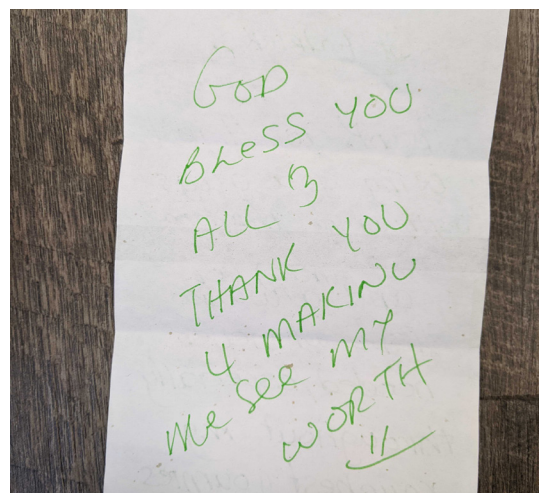 GOD
BLeSS YOU
ALL 3
THANK YOU
4 MAKING
Me See MY
WORTH